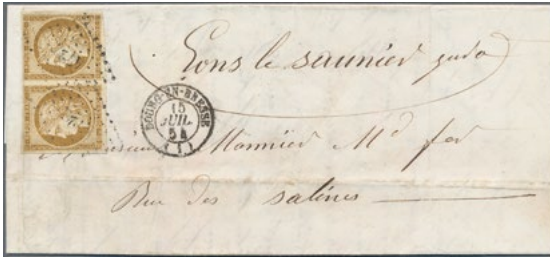 Lons le saunier jura
BOURG-EN-BRESSE
15
JUIL.
54
(1)
Monsieur Monnier Md fer
Rue des salines